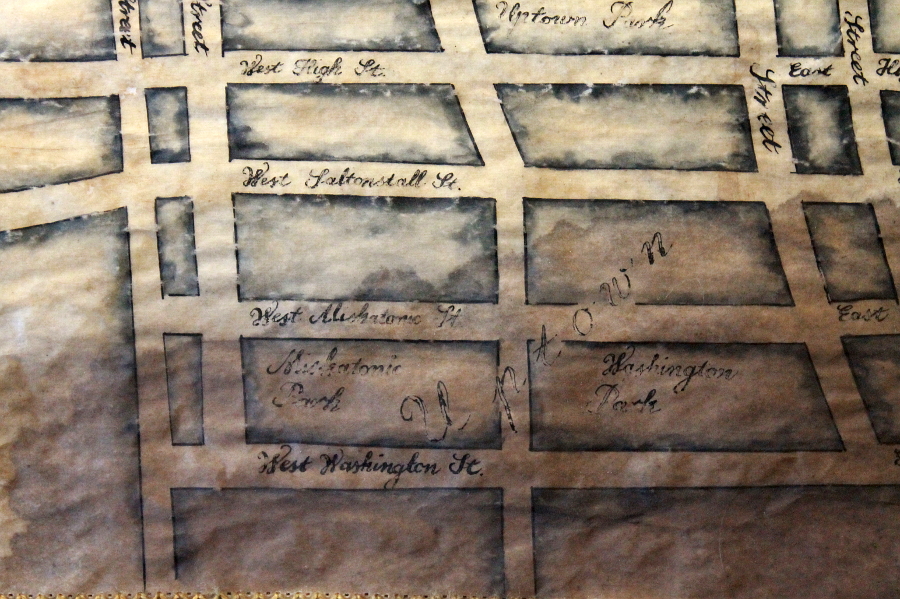 Street
Street
Uptown Park
Street
West High St.
East
Street
West Saltonstall St.
Uptown
West Miskatonic St.
East
Miskatonic
Park
Washington
Park
West Washington St.